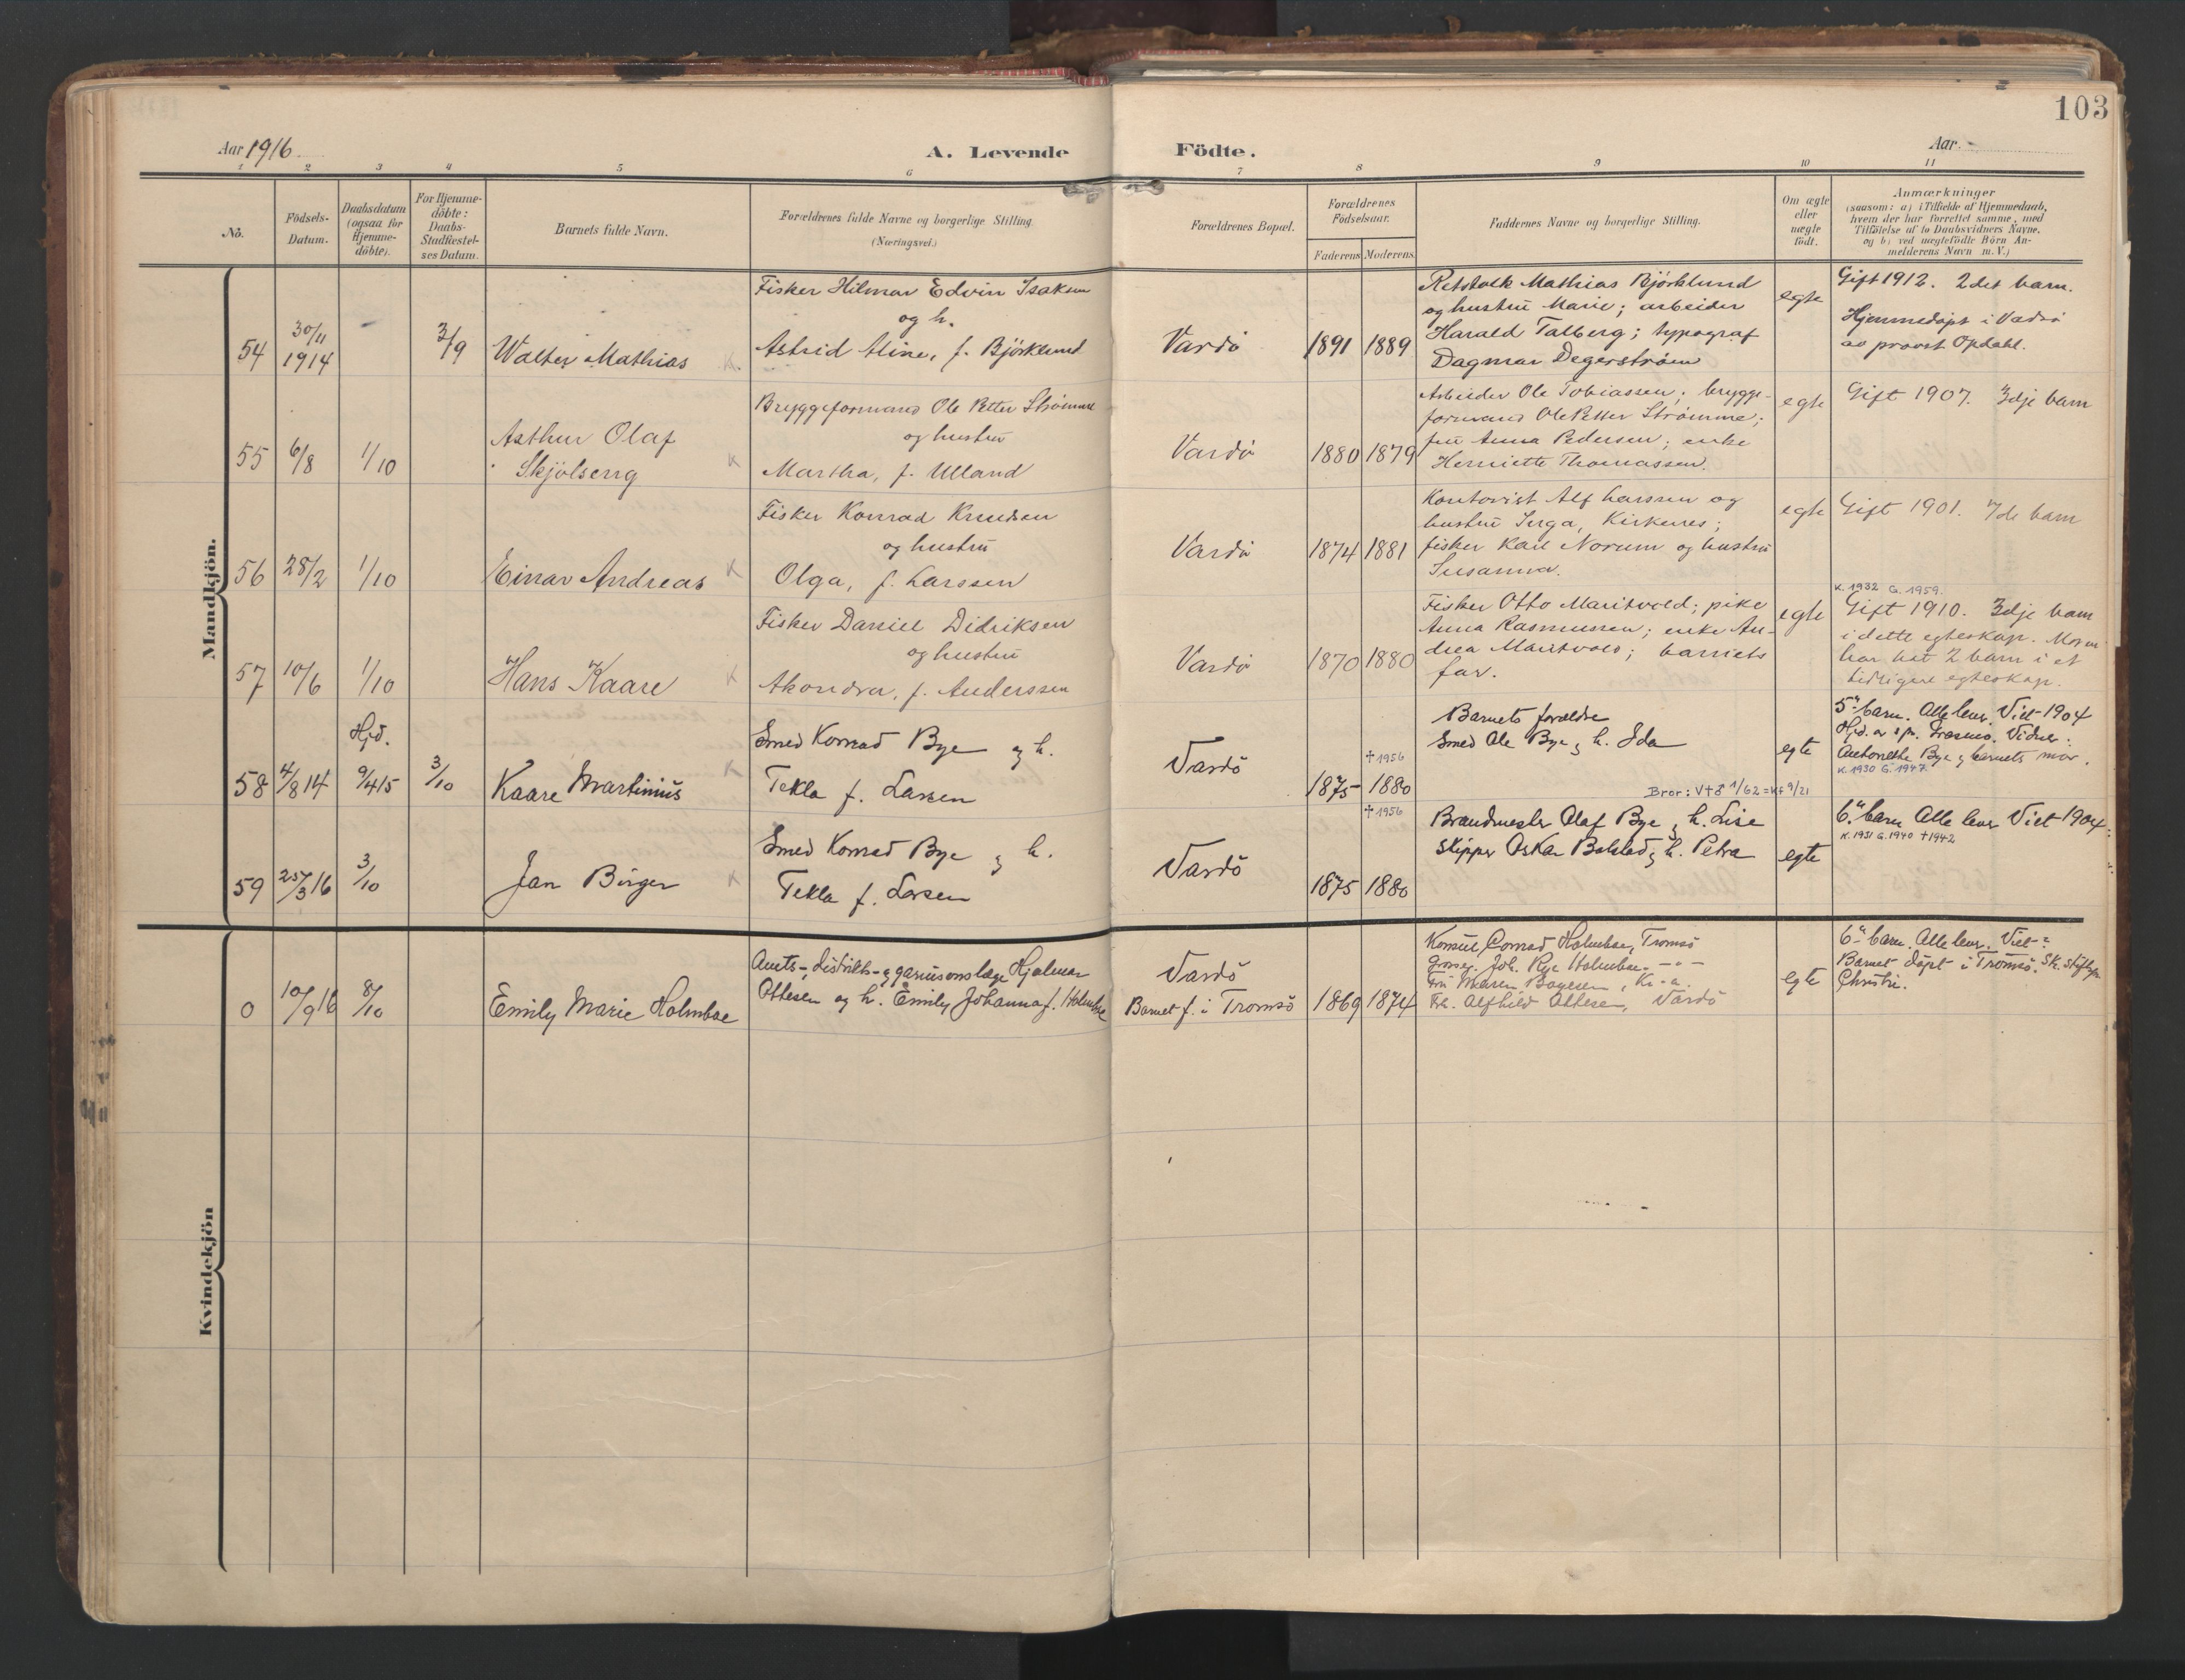 103
Aar 1916
A. Levende
Födte.
Aar.
1 2 3 4 5 6 7 8 9 10 11
No.
Födsels-
Datum.
Daabsdatum
(ogsaa for
Hjemme-
döbte).
For Hjemme-
döbte:
Daabs-
Stadfæstel-
ses Datum.
Barnets fulde Navn.
Forældrenes fulde Navne og borgerlige Stilling.
(Næringsvei.)
Forældrenes Bopæl.
Forældrenes
Födselsaar.
Faderens Moderens
Faddernes Navne og borgerlige Stilling.
Om ægte
eller
uægte
födt.
Anmærkninger
(saasom: a) i Tilfælde af Hjemmedaab,
hvem der har forrettet samme, med
Tilföielse af to Daabsvidners Navne,
og b) ved uægtefödte Börn An-
melderens Navn m. V.)
Mandkjön.
54
30/11
1914
3/9
Walter Mathias
K.
Fisker Hilmar Edvin Isaksen
og h.
Astrid Aline, f. Björklund
Vardö
1891 1889
Retstolk Mathias Björklund
og hustru Marie; arbeider
Harald Talberg; typograf
Dagmar Degerström
egte
Gift 1912. 2det barn.
Hjemmedöpt i Vadsö
av provst Opdahl.
55
6/8
1/10
Arthur Olaf
Skjölseng
K
Bryggeformand Ole Petter Strömme
og hustru
Martha, f. Ulland
Vardö
1880 1879
Arbeider Ole Tobiassen; brygge-
formand Ole Petter Strömme;
fru Anna Pedersen; enke
Henriette Thomassen.
egte
Gift 1907. 3dje barn
56
28/2
1/10
Einar Andreas
K
Fisker Konrad Knudsen
og hustru
Olga, f. Larssen
Vardö
1874 1881
Kontorist Alf Larssen og
hustru Inga, Kirkenes;
fisker Karl Norum og hustru
Susanna.
egte
Gift 1901. 7de barn
57
10/6
1/10
Hans Kaare
K
Fisker Daniel Didriksen
og hustru
Akondra, f. Anderssen
Vardö
1870 1880
Fisker Otto Maritvold; pike
Anna Rasmussen; enke An-
drea Maritvold; barnets
far.
egte
K. 1932 G. 1959.
Gift 1910. 3dje barn
i dette egteskap. Moren
har hat 2 barn i et
tidligere egteskap.
58
4/8 14
Hjd.
9/4 15
3/10
Kaare Martinius
K
Smed Konrad Bye og h.
Tekla f. Larsen
Vardö
1875
† 1956
1880
Barnets forældre
Smed Ole Bye og h. Ida
Bror: V † 8 1/62 = Kf 9/21
egte
5te barn. Alle lever. Viet 1904
Hjd. av spr. Vidner:
Anthonette Bye og barnets mor.
K. 1930 G. 1947.
59
25/3 16
3/10
Jan Birger
K
Smed Konrad Bye og h.
Tekla f. Larsen
Vardö
1875
† 1956
1880
Brandmester Olaf Bye og h. Lise
Skipper Oskar Bolstad og h. Petra
egte
6te barn Alle lever Viet 1904
K. 1931 G. 1940 † 1942
Kvindekjön
0
10/9 16
8/10
Emily Marie Holmboe
Amts-, distrikts- og garnisonslæge Hjalmar
Ottesen og h. Emily Johanna f. Holmboe
Vardö
Barnet f. i Tromsö
1869 1874
Konsul Conrad Holmboe, Tromsö
Grosser. Joh. Rye Holmboe - " -
Fru Maren Boyesen, Kr-a.
Frk. Alfhild Ottesen, Vardö
egte
6te barn. Alle lever. Viet
Barnet döpt i Tromsö. Sk. Stiftspr.
Christie.